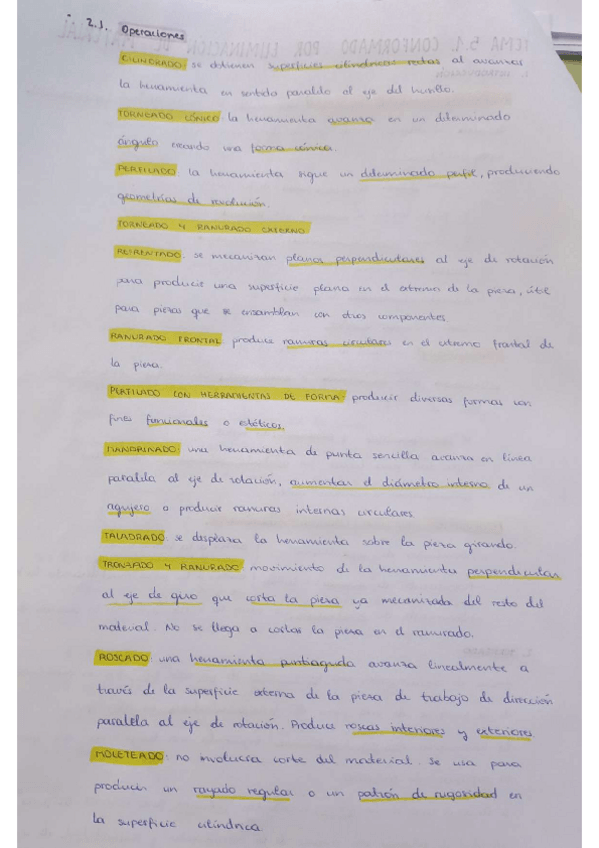 2.3. Operaciones
CILINDRADO: se obtienen superficies cilíndricas rectas al avanzar
la herramienta en sentido paralelo al eje del husillo.
TORNEADO CÓNICO: la herramienta avanza en un determinado
ángulo creando una forma cónica.
PERFILADO: la herramienta sigue un determinado perfil, produciendo
geometrías de revolución.
TORNEADO Y RANURADO EXTERNO
REFRENTADO: se mecanizan planos perpendiculares al eje de rotación
para producir una superficie plana en el extremo de la pieza, útil
para piezas que se ensamblan con otros componentes.
RANURADO FRONTAL produce ranuras circulares en el extremo frontal de
la pieza.
PERFILADO CON HERRAMIENTAS DE FORMA: producir diversas formas con
fines funcionales o estéticos.
MANDRINADO: una herramienta de punta sencilla avanza en línea
paralela al eje de rotación, aumentar el diámetro interno de un
agujero o producir ranuras internas circulares.
TALADRADO: se desplaza la herramienta sobre la pieza girando.
TRONZADO Y RANURADO: movimiento de la herramienta perpendicular
al eje de giro que corta la pieza ya mecanizada del resto del
material. No se llega a cortar la pieza en el ranurado.
ROSCADO: una herramienta puntiaguda avanza linealmente a
través de la superficie externa de la pieza de trabajo de dirección
paralela al eje de rotación. Produce roscas interiores y exteriores.
MOLETEADO: no involucra corte del material. Se usa para
producir un rayado regular o un patrón de rugosidad en
la superficie cilíndrica